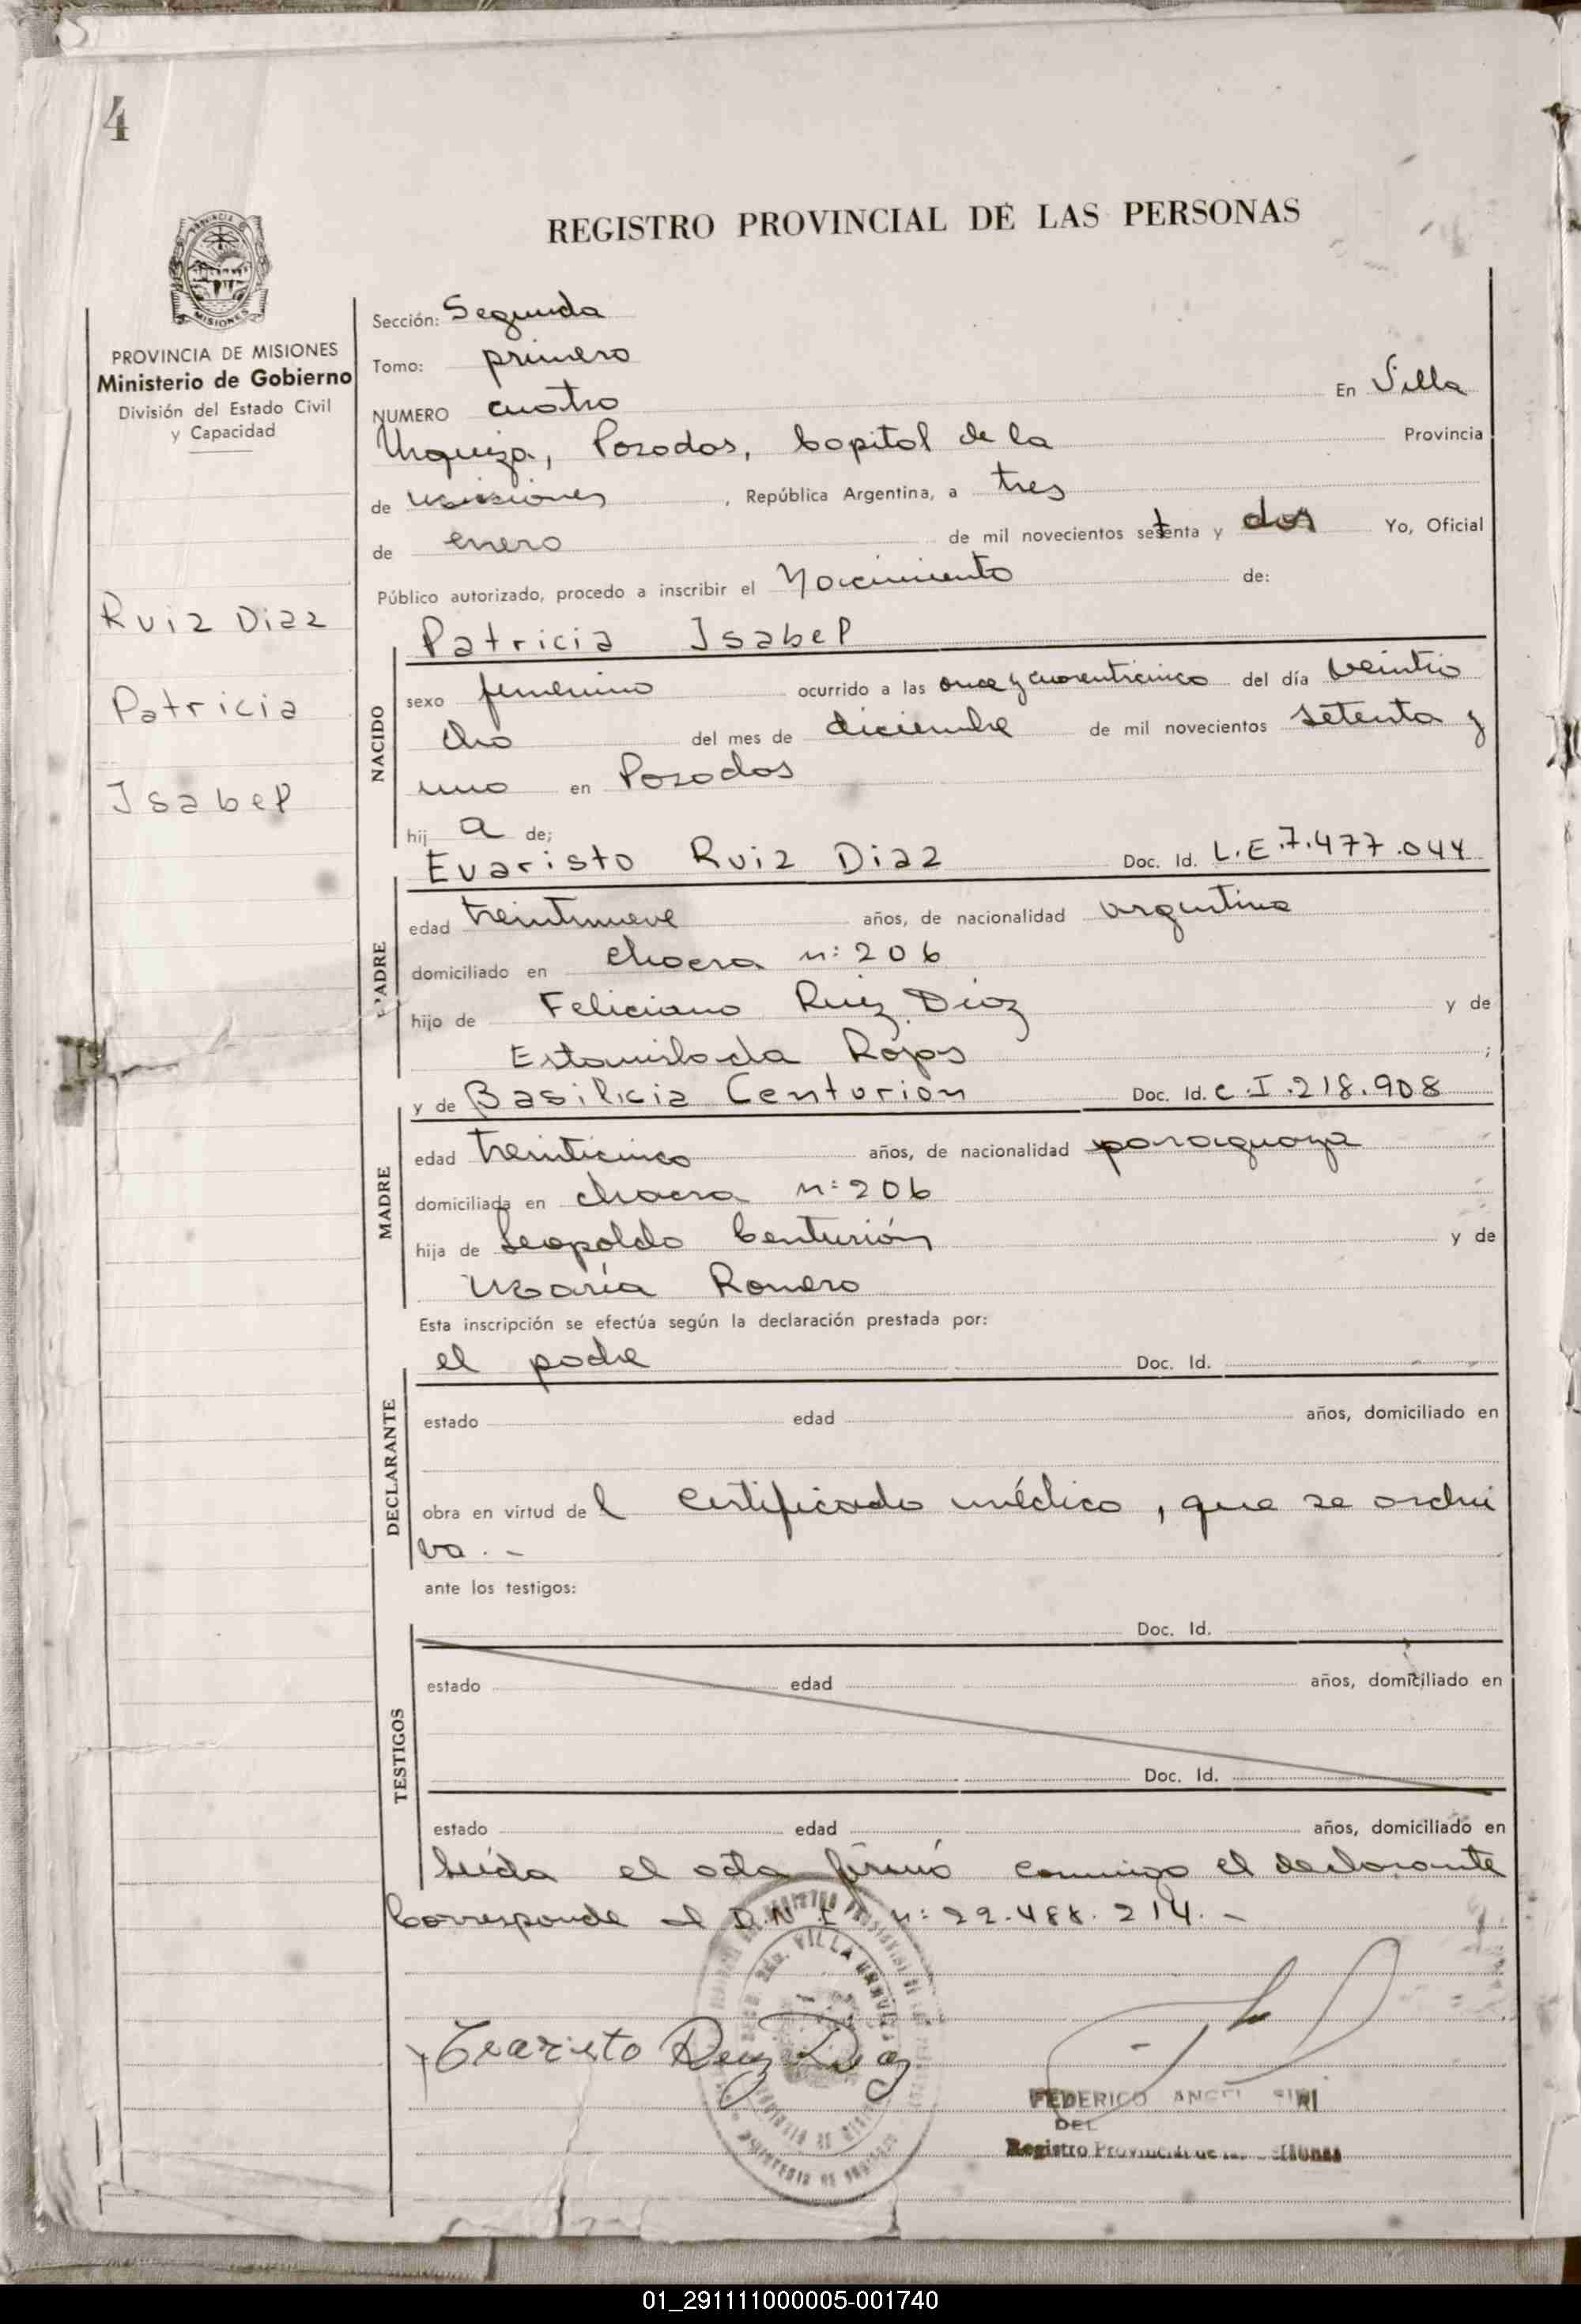 4
REGISTRO PROVINCIAL DE LAS PERSONAS
PROVINCIA
MISIONES
PROVINCIA DE MISIONES
Ministerio de Gobierno
División del Estado Civil
y Capacidad
Ruiz Diaz
Patricia
Isabel
Sección: Segunda
Tomo: primero
NUMERO cuatro En Villa
Urquiza, Posadas, Capital de la Provincia
de Misiones, República Argentina, a tres
de enero de mil novecientos setenta y dos Yo, Oficial
Público autorizado, procedo a inscribir el Nacimiento de:
Patricia Isabel
NACIDO
sexo femenino ocurrido a las once y cuarenticinco del día veintio
cho del mes de diciembre de mil novecientos setenta y
uno en Posadas
hij a de;
Evaristo Ruiz Diaz Doc. Id. L.E.7.477.044
PADRE
edad treintinueve años, de nacionalidad argentina
domiciliado en chacra n: 206
hijo de Feliciano Ruiz Díaz y de
Estanislada Rojas ;
y de Basilicia Centurion Doc. Id. C.I.218.908
MADRE
edad treinticinco años, de nacionalidad paraguaya
domiciliada en chacra n: 206
hija de Leopoldo Centurión y de
María Romero
Esta inscripción se efectúa según la declaración prestada por:
el padre Doc. Id.
DECLARANTE
estado edad años, domiciliado en
obra en virtud de l certificado médico, que se archi
va.-
ante los testigos:
Doc. Id.
TESTIGOS
estado edad años, domiciliado en
Doc. Id.
estado edad años, domiciliado en
Leída el acta firmó conmigo el declarante
Corresponde al D.N.I. n: 22.488.214.-
VILLA
Evaristo Ruiz Diaz
FEDERICO ANGEL SIRI
DEL
Registro Provincial de las Personas
01_291111000005-001740